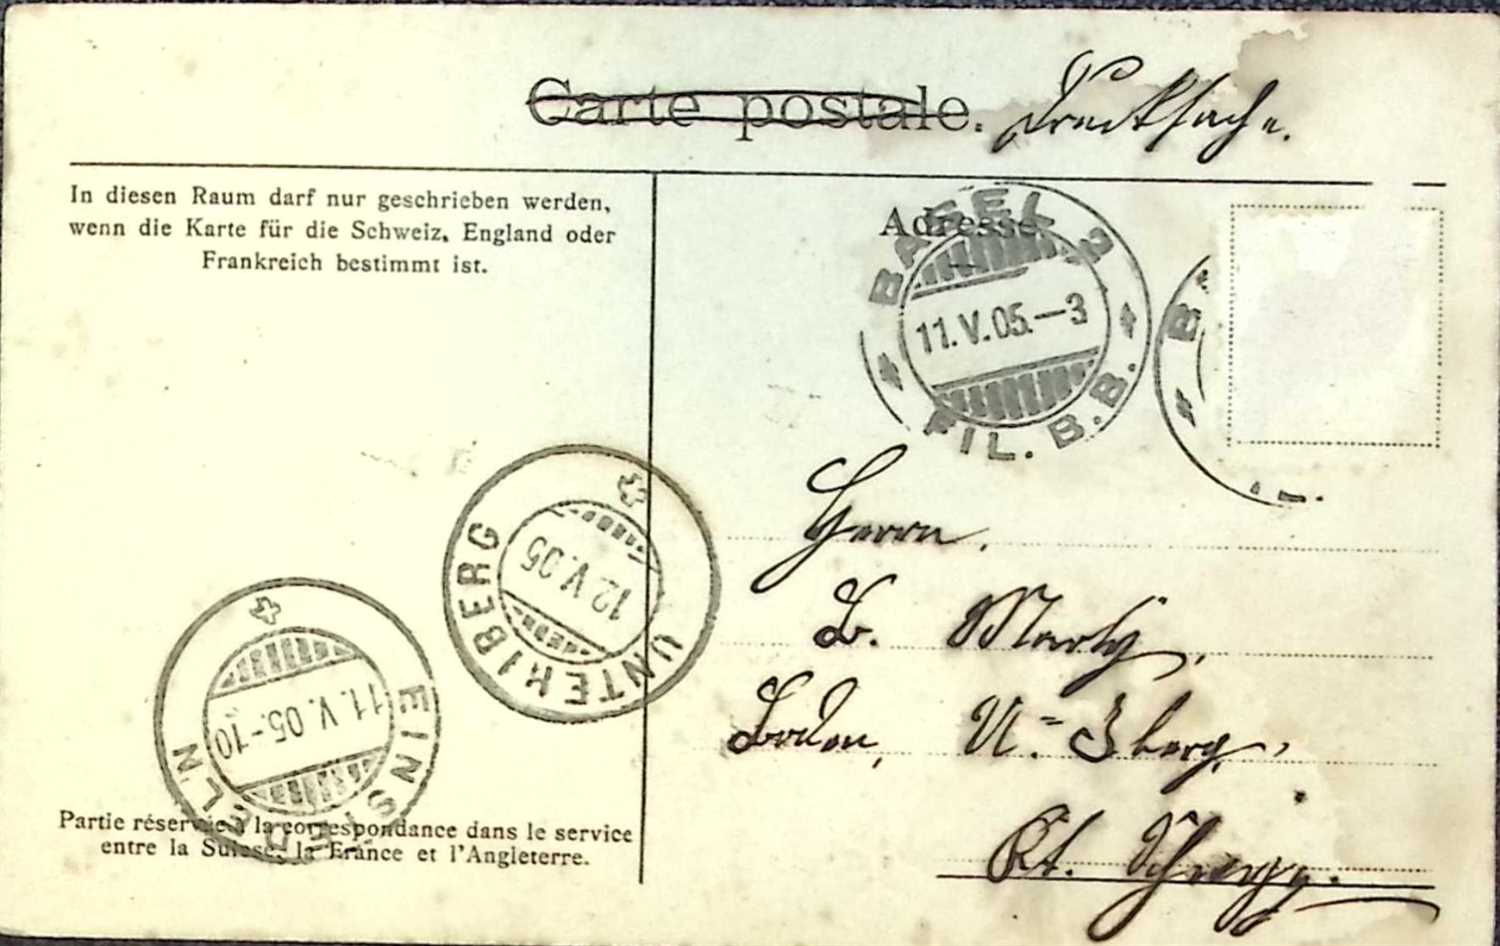 Carte postale. Drucksache.
In diesen Raum darf nur geschrieben werden,
wenn die Karte für die Schweiz, England oder
Frankreich bestimmt ist.
Adresse
BASEL 2
11.V.05.-3
FIL. B.B.
B
Herrn
B. Marty,
Boden, U.=Iberg,
Kt. Schwyz.
UNTERIBERG
12.V.05
EINSIEDELN
11.V.05.-10
Partie réservée à la correspondance dans le service
entre la Suisse, la France et l'Angleterre.